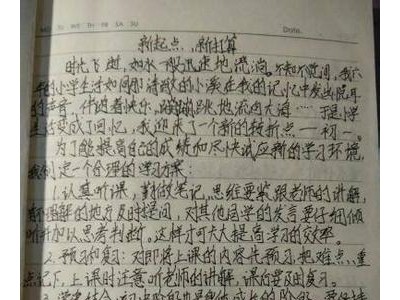 MO TU WE TH FR SA SU Date.
新起点,新打算
时光飞逝,如水一般迅速地流淌。不知不觉间,我六
年的小学生活如同那清澈的小溪在我的记忆中发出悦耳
的声音,伴随着快乐,蹦蹦跳跳地流向大海……于是小学
生活变成了回忆,我迎来了一个新的转折点—初一。
为了能提高自己的成绩和尽快试应新的学习环境,
我制定一个合理的学习方案:
1.认真听课,勤做笔记,思维要紧跟老师的讲解,
有不理解的地方及时提问,对其他同学的发言要仔细倾
听并加以思考判断。这样才可大大提高学习的效率。
2.预习和复习:对即将上课的内容先预习,把难点、重
点记下,上课时注意听老师的讲解,课后要及时复习。